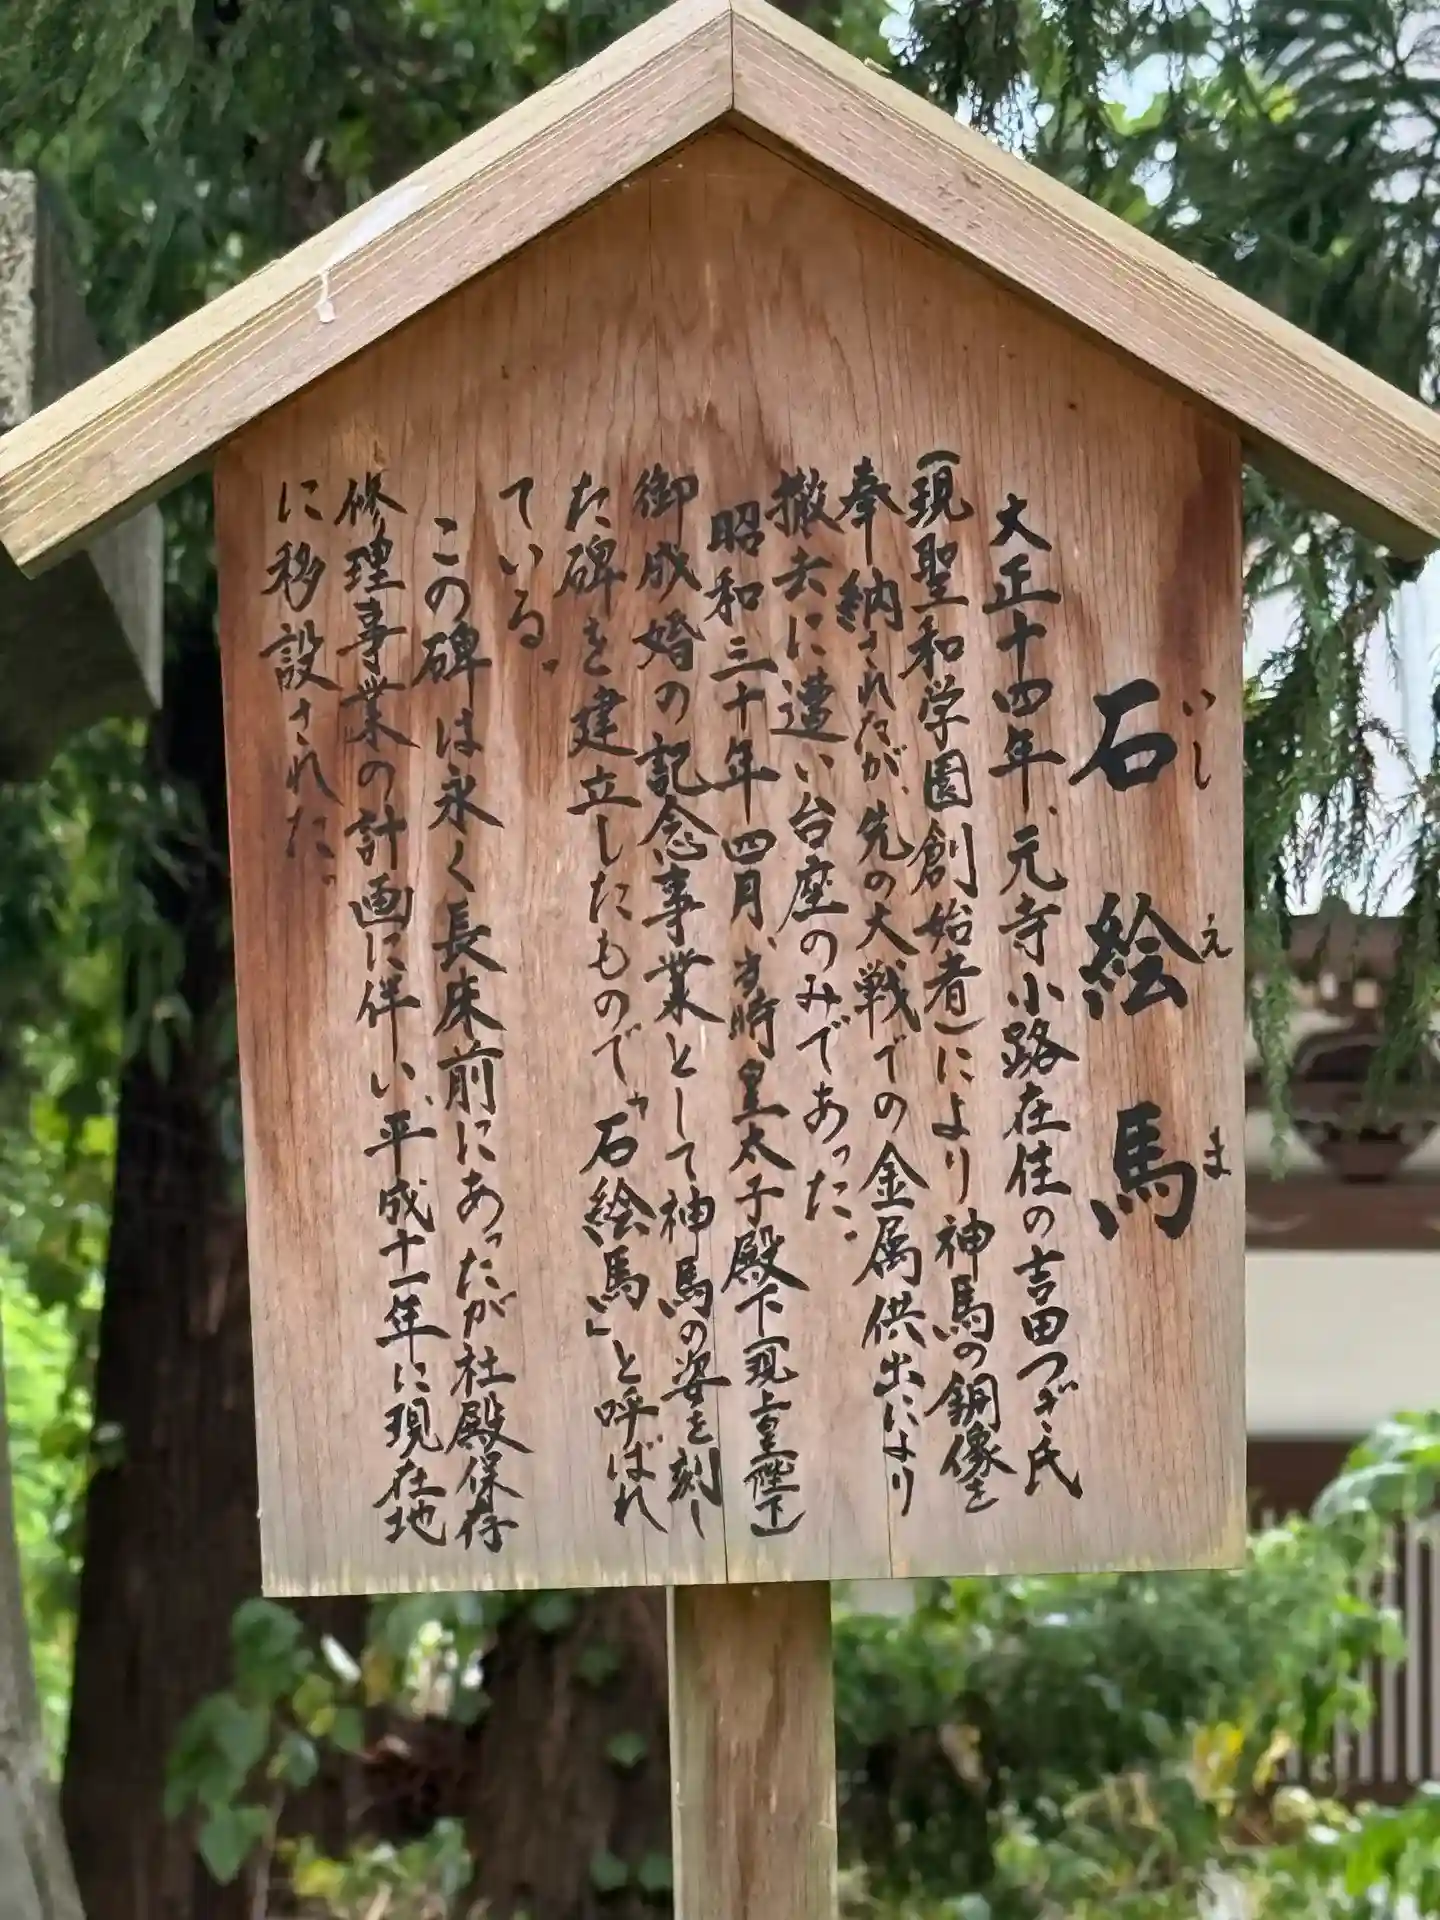 石絵馬
いしえま
大正十四年、元寺小路在住の吉田つぎ氏
(現聖和学園創始者)により神馬の銅像を
奉納されたが、先の大戦での金属供出により
撤去に遭い台座のみであった。
昭和三十年四月、当時皇太子殿下(現上皇陛下)
御成婚の記念事業として神馬の姿を刻し
た碑を建立したもので「石絵馬」と呼ばれ
ている。
この碑は永く長床前にあったが社殿保存
修理事業の計画に伴い、平成十一年に現在地
に移設された。